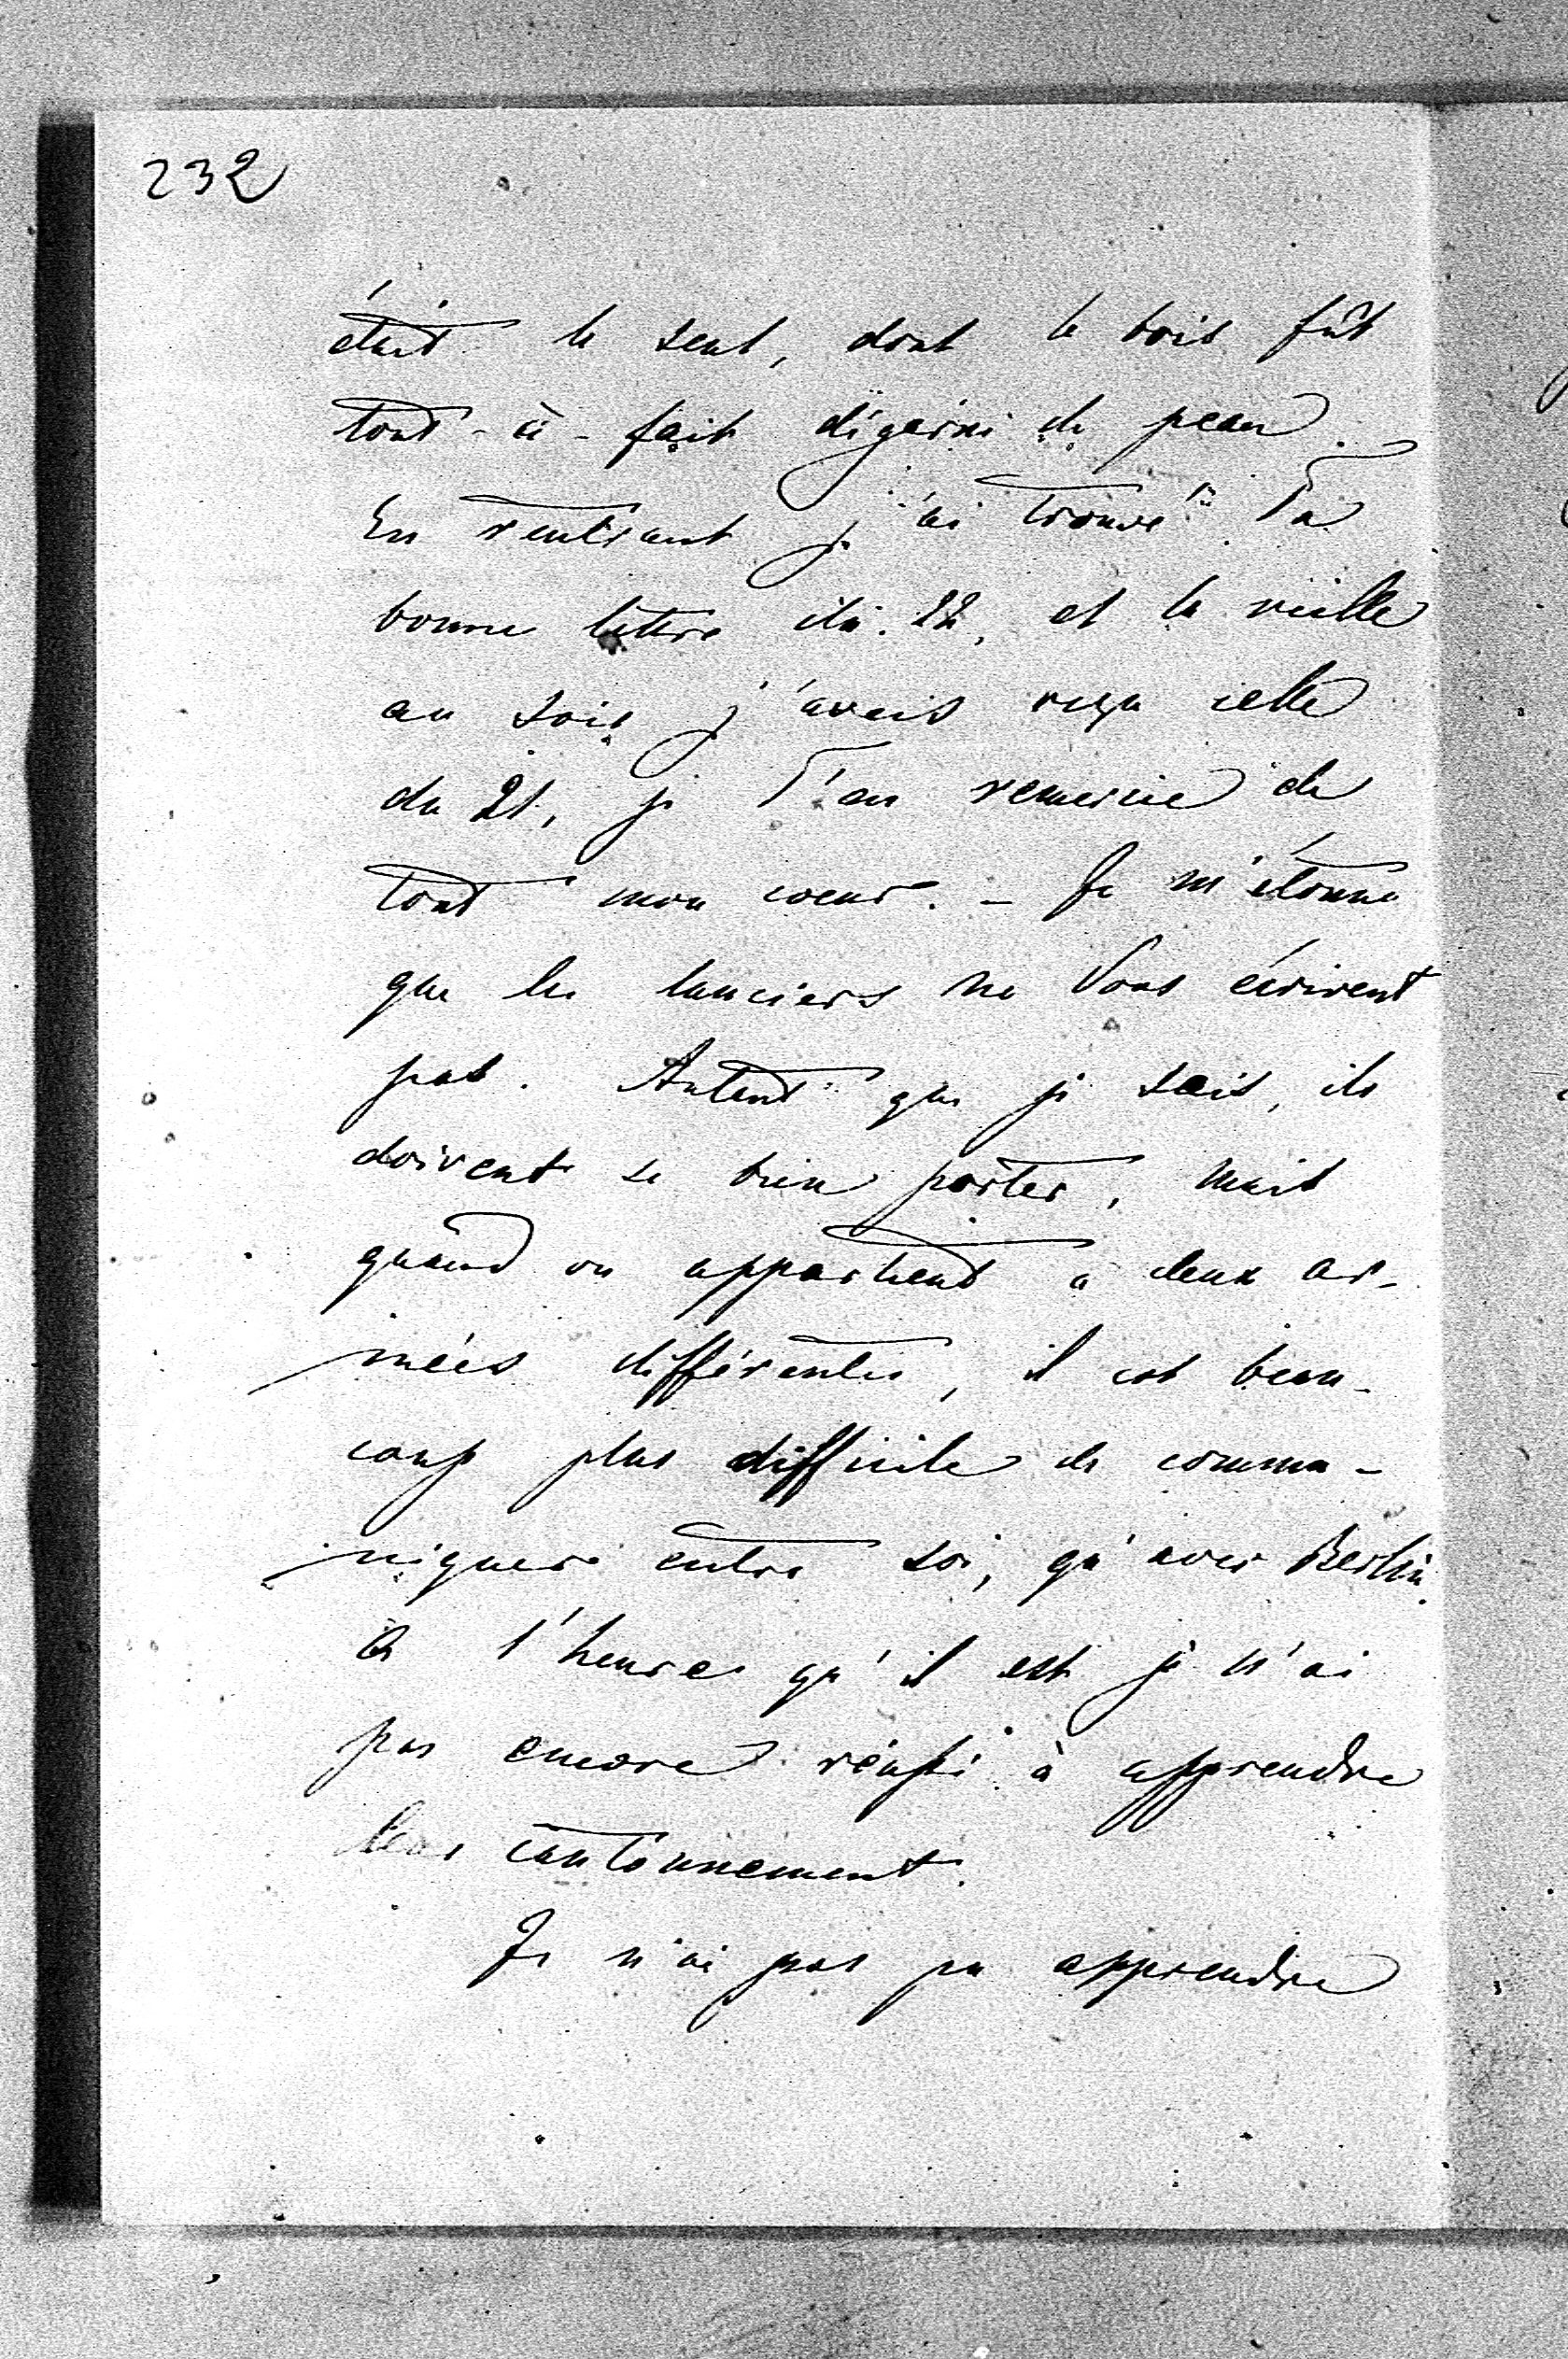 232
était le seul, dont le bois fût
tout-à-fait dégarni de peau.
En rentrant j'ai trouvé Ta
bonne lettre du 22, et la veille
au soir j'avais reçu celle
du 21, je T'en remercie de
tout mon coeur. - Je m'étonne
que les lanciers ne Vous écrivent
pas. Autant que je sais, ils
doivent se bien porter, mais
quand on appartient à deux ar-
mées différentes, il est beau-
coup plus difficile de commu-
niquer entre soi, qu'avec Berlin.
A l'heure qu'il est je n'ai
pas encore réussi à apprendre
leur cantonnement.
Je n'ai pas pu apprendre